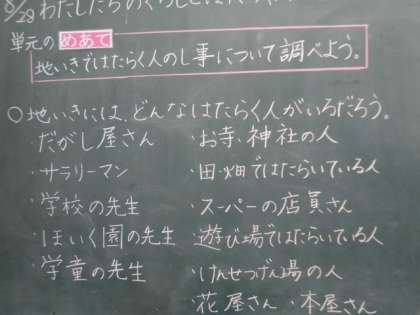 8/29 わたしたちのくらしと
単元の めあて
地いきではたらく人のし事について調べよう。
○地いきには、どんなはたらく人がいるだろう。
だがし屋さん
・サラリーマン
・学校の先生
・ほいく園の先生
・学童の先生
・お寺・神社の人
・田・畑ではたらいている人
・スーパーの店員さん
・遊び場ではたらいている人
・けんせつげん場の人
・花屋さん ・本屋さん